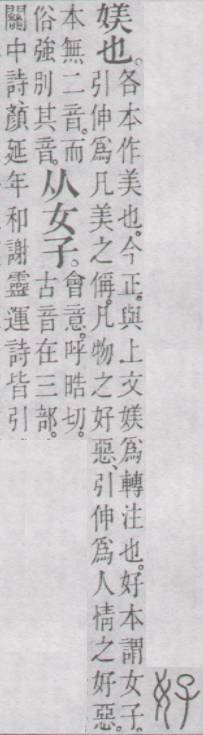 好
媄也。
各本作美也。今正。與上文媄爲轉注也。好本謂女子。
引伸爲凡美之偁。凡物之好惡、引伸爲人情之好惡。
本無二音。而
俗強別其音。
从女子。
會意。呼晧切。
古音在三部。
關中詩、顏延年和謝靈運詩皆引